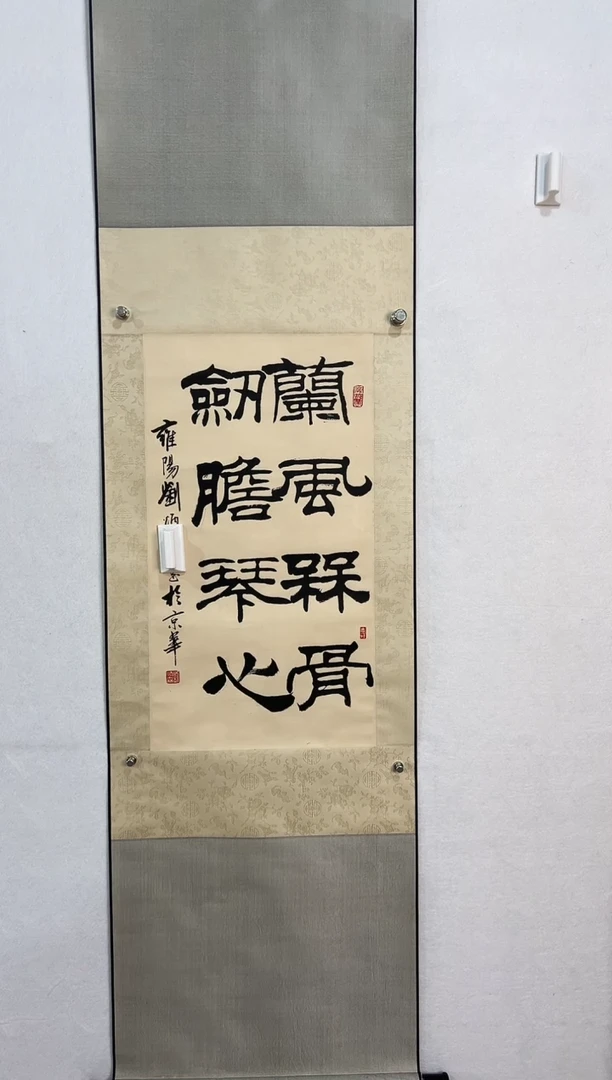 蘭風槑骨
劒膽琴心
雍陽劉
於京華